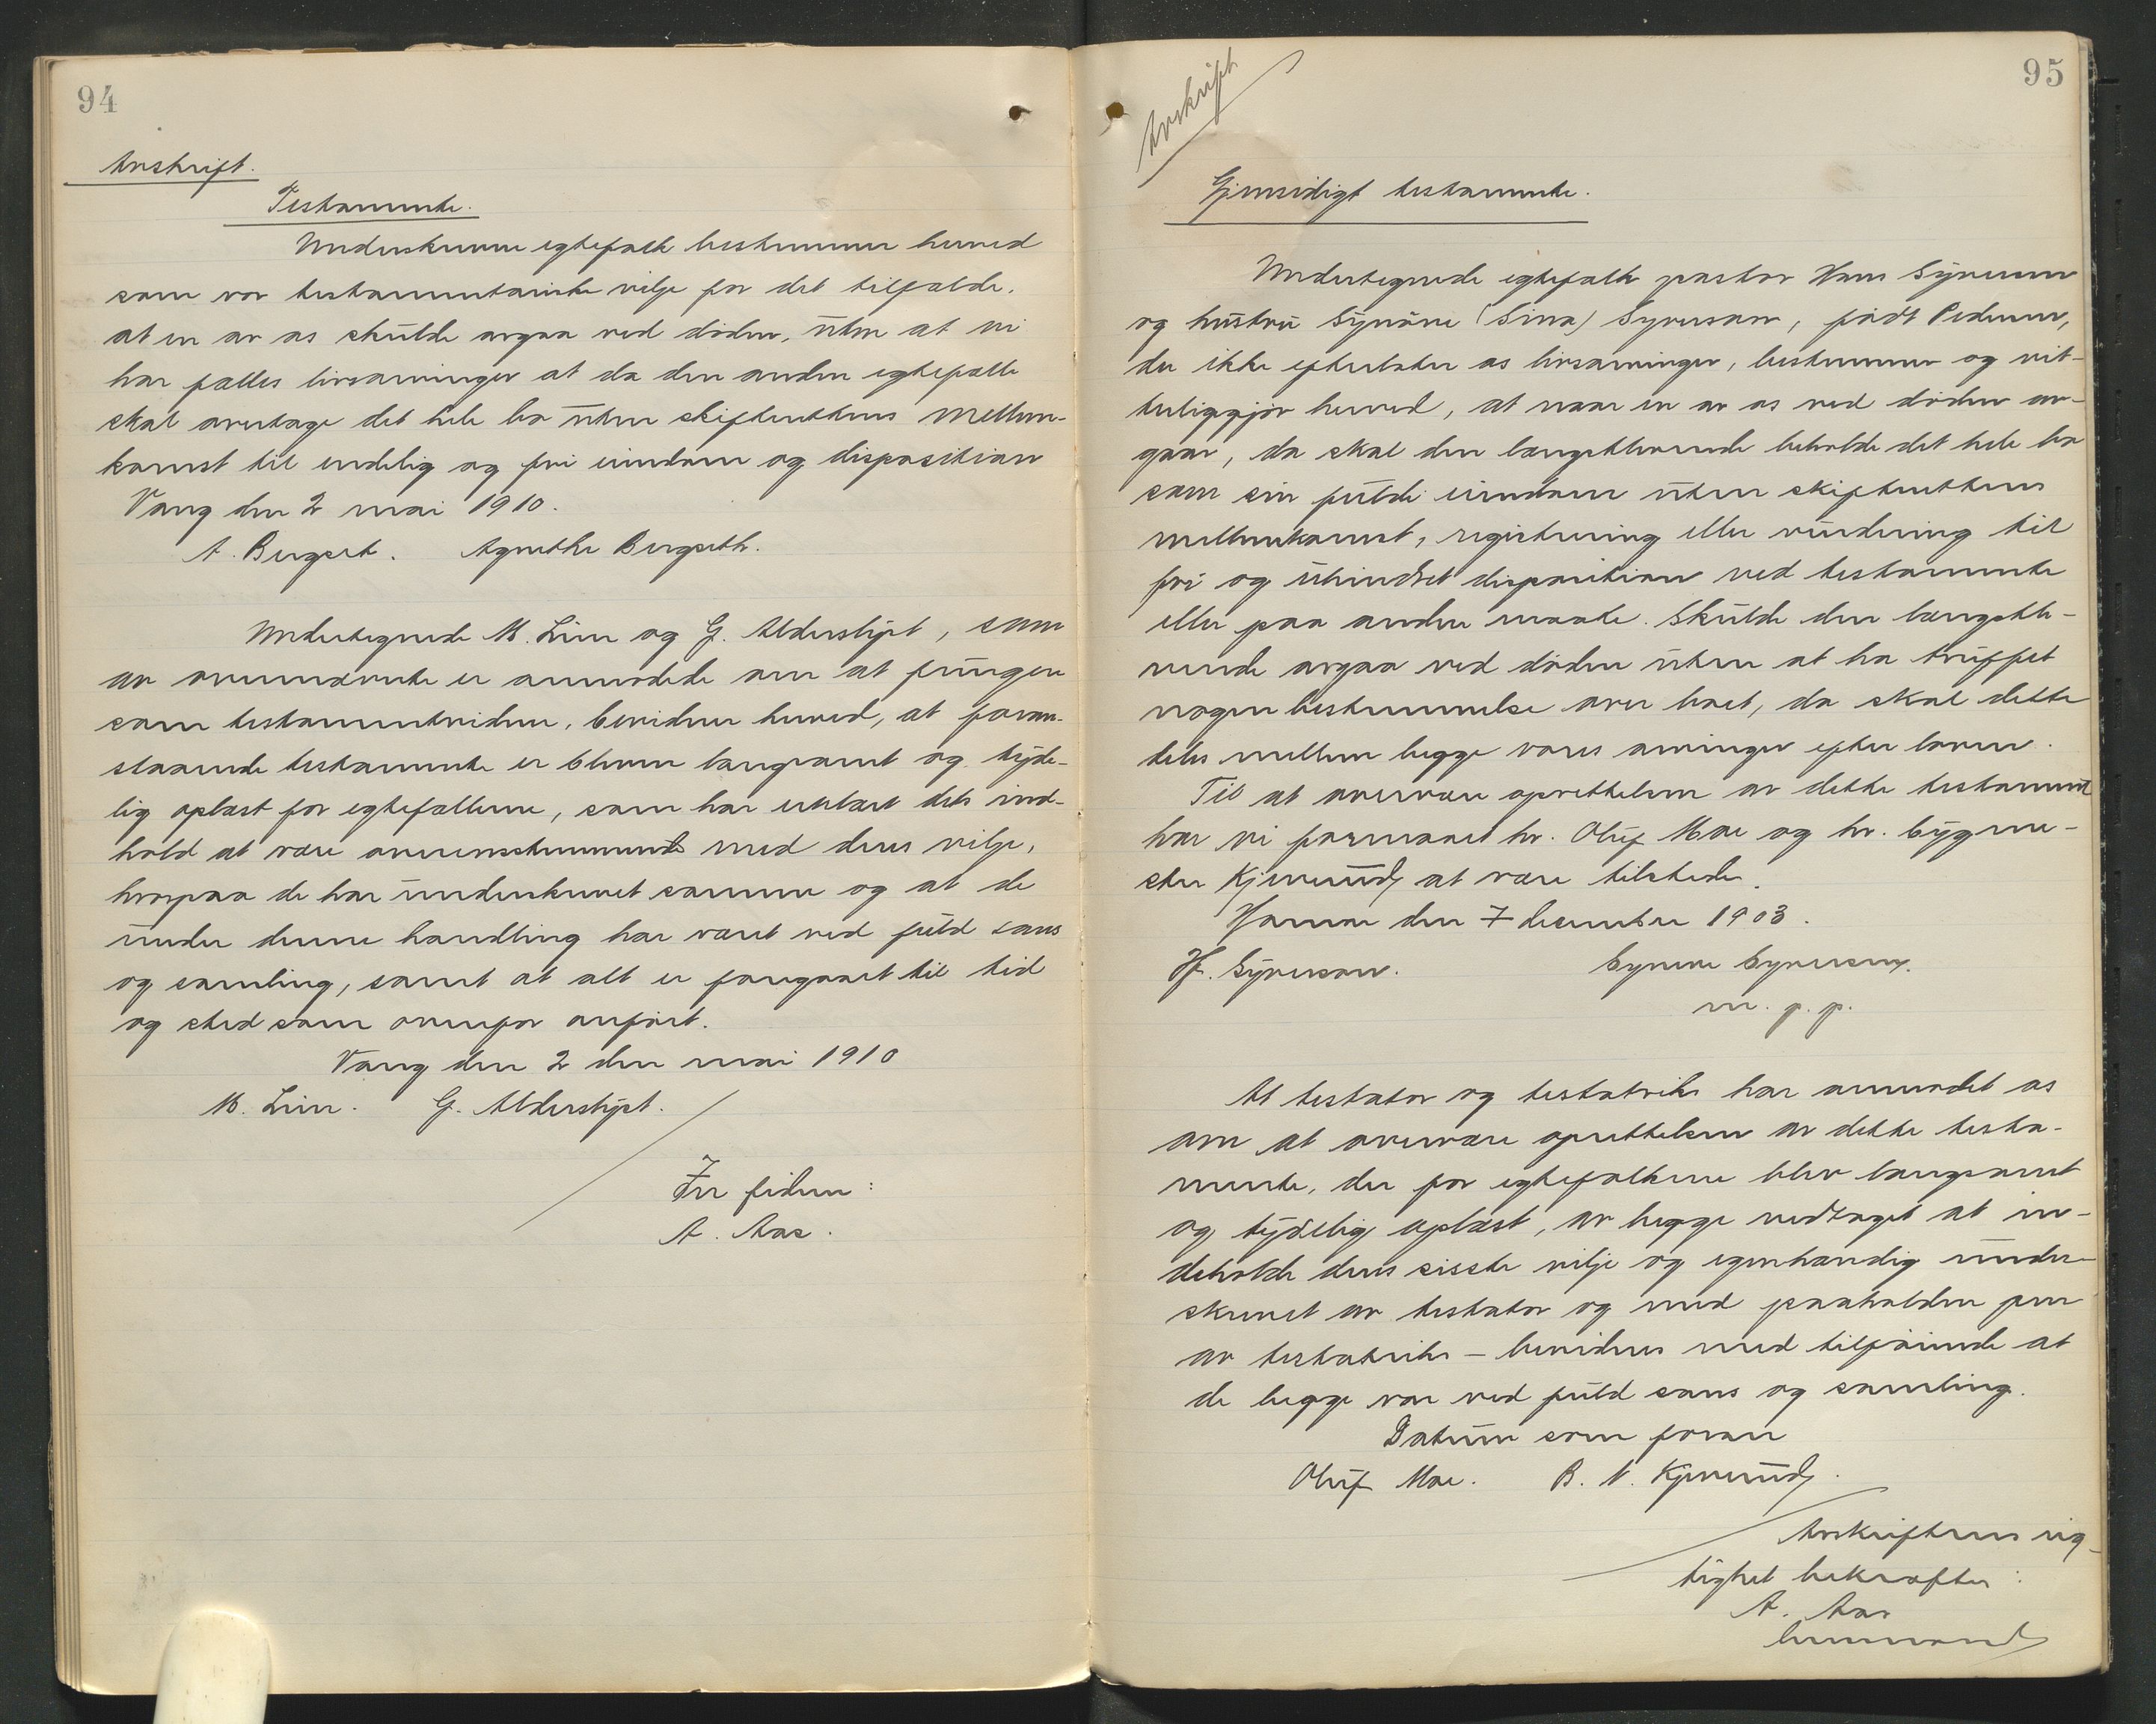 94
Avskrift.
Testamente.
Underskrevne egtefolk bestemmer herved
som vor testamentariske vilje for det tilfælde,
at en av os skulde avgaa ved döden, uten at vi
har fælles livsarvinger at da den anden egtefælle
skal overtage det hele bo uten skifterettens mellem-
komst til endelig og fri eiendom og disposition
Vang den 2 mai 1910.
A. Bergset. Agnethe Bergseth.
Undertegnede M. Lien og G. Alderslyst, som
av ovennævnte er anmodede om at fungere
som testamentvidner, bevidner herved, at foran-
staaende testamente er bleven langsomt og tyde-
lig oplæst for egtefællerne, som har erklært dets ind-
hold at være overensstemmende med deres vilje,
hvorpaa de har underskrevet samme og at de
under denne handling har været ved fuld sans
og samling, samt at alt er foregaaet til tid
og sted som ovenfor anfört.
Vang den 2 den mai 1910
M. Lien. G. Alderslyst.
In fidem:
A. Aas.
95
Avskrift
Gjensidigt testamente.
Undertegnede egtefolk pastor Hans Syversen
og hustru Synöve (Sina) Syversen, födt Pedersen,
der ikke efterlater os livsarvinger, bestemmer og vit-
terliggjör herved, at naar en av os ved döden av-
gaar, da skal den længstlevende beholde det hele bo
som sin fulde eiendom uten skifterettens
mellemkomst, registrering eller vurdering til
fri og uhindret disposition ved testamente
eller paa anden maate. Skulde den længstle-
vende avgaa ved döden uten at ha truffet
nogen bestemmelse over boet, da skal dette
deles mellem begge vores arvinger efter loven.
Til at overvære oprettelsen av dette testament
har vi formaaet hr. Oluf Moe og hr. bygme-
ster Kjeverud at være tilstede.
Hamar den 7 desember 1903.
H. Syversen. Synöve Syversen.
m. p. p.
At testator og testatrix har anmodet os
om at overvære oprettelsen av dette testa-
mente, der for egtefolkene blev langsomt
og tydelig oplæst, av begge vedtaget at in-
deholde deres sisste vilje og egenhændig under-
skrevet av testator og med paaholden pen
av testatrix – bevidnes med tilföiende at
de begge var ved fuld sans og samling.
Datum som foran
Oluf Moe. B. N. Kjeverud.
Avskriftens rig-
tighet bekræfter:
A. Aas
lensmand